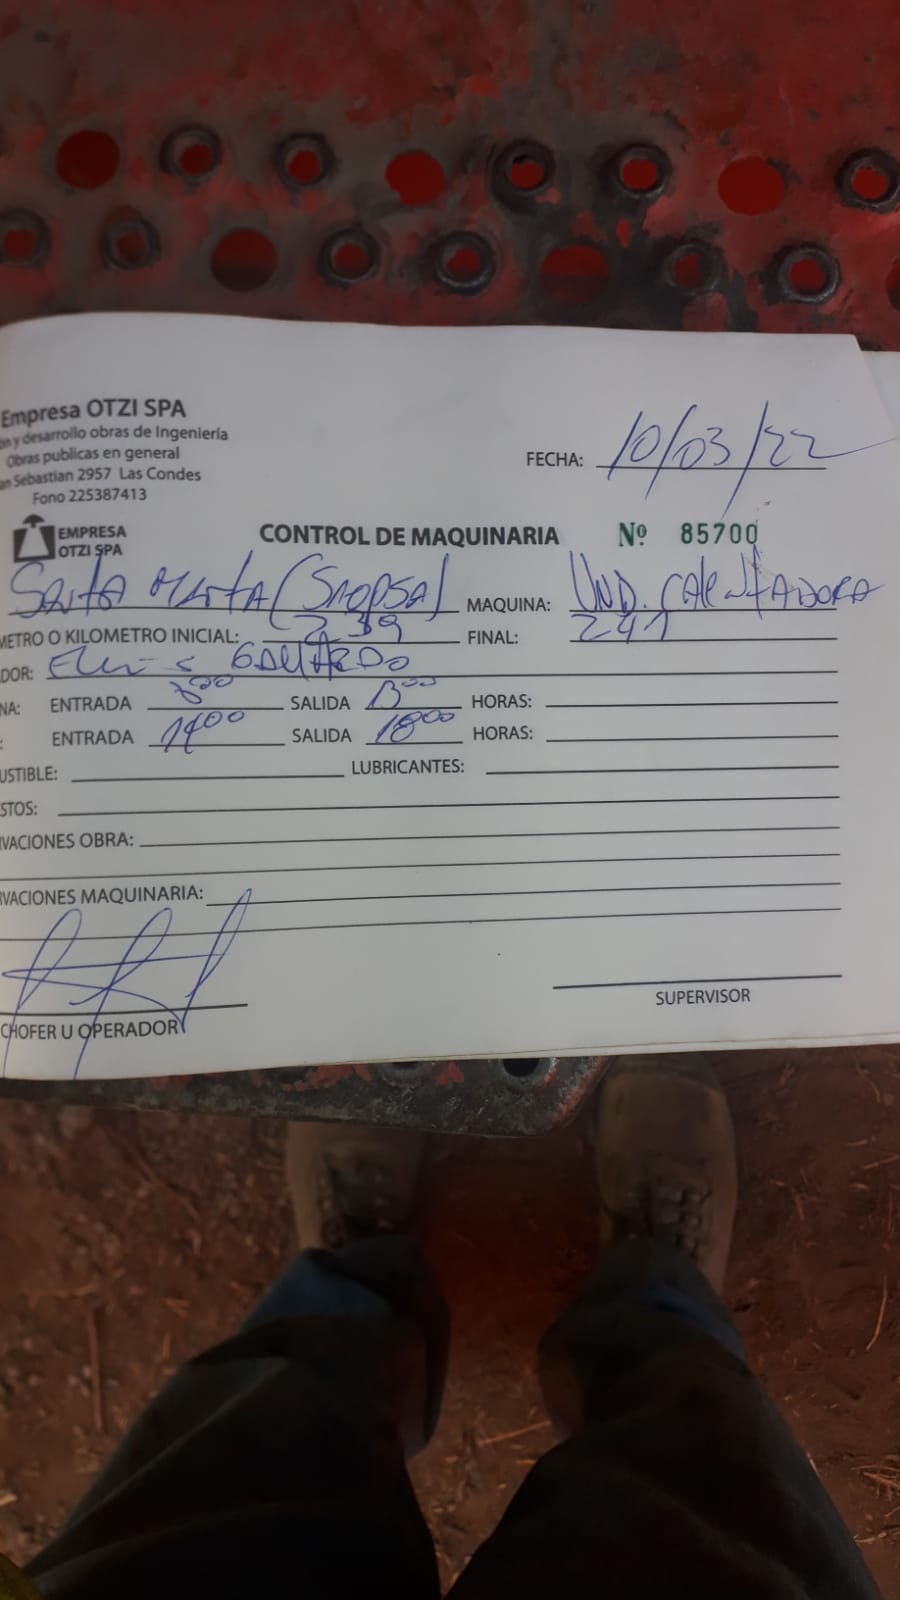 Empresa OTZI SPA
ón y desarrollo obras de Ingeniería
Obras publicas en general
an Sebastian 2957 Las Condes
Fono 225387413
FECHA: 10/03/22
EMPRESA
OTZI SPA
CONTROL DE MAQUINARIA Nº 85700
Santa Marta MAQUINA: UND. CALENTADORA
METRO O KILOMETRO INICIAL: 239 FINAL: 241
DOR: GALLARDO
NA: ENTRADA 8:00 SALIDA 13:00 HORAS:
: ENTRADA 14:00 SALIDA 18:00 HORAS:
USTIBLE: LUBRICANTES:
STOS:
VACIONES OBRA:
RVACIONES MAQUINARIA:
CHOFER U OPERADOR
SUPERVISOR